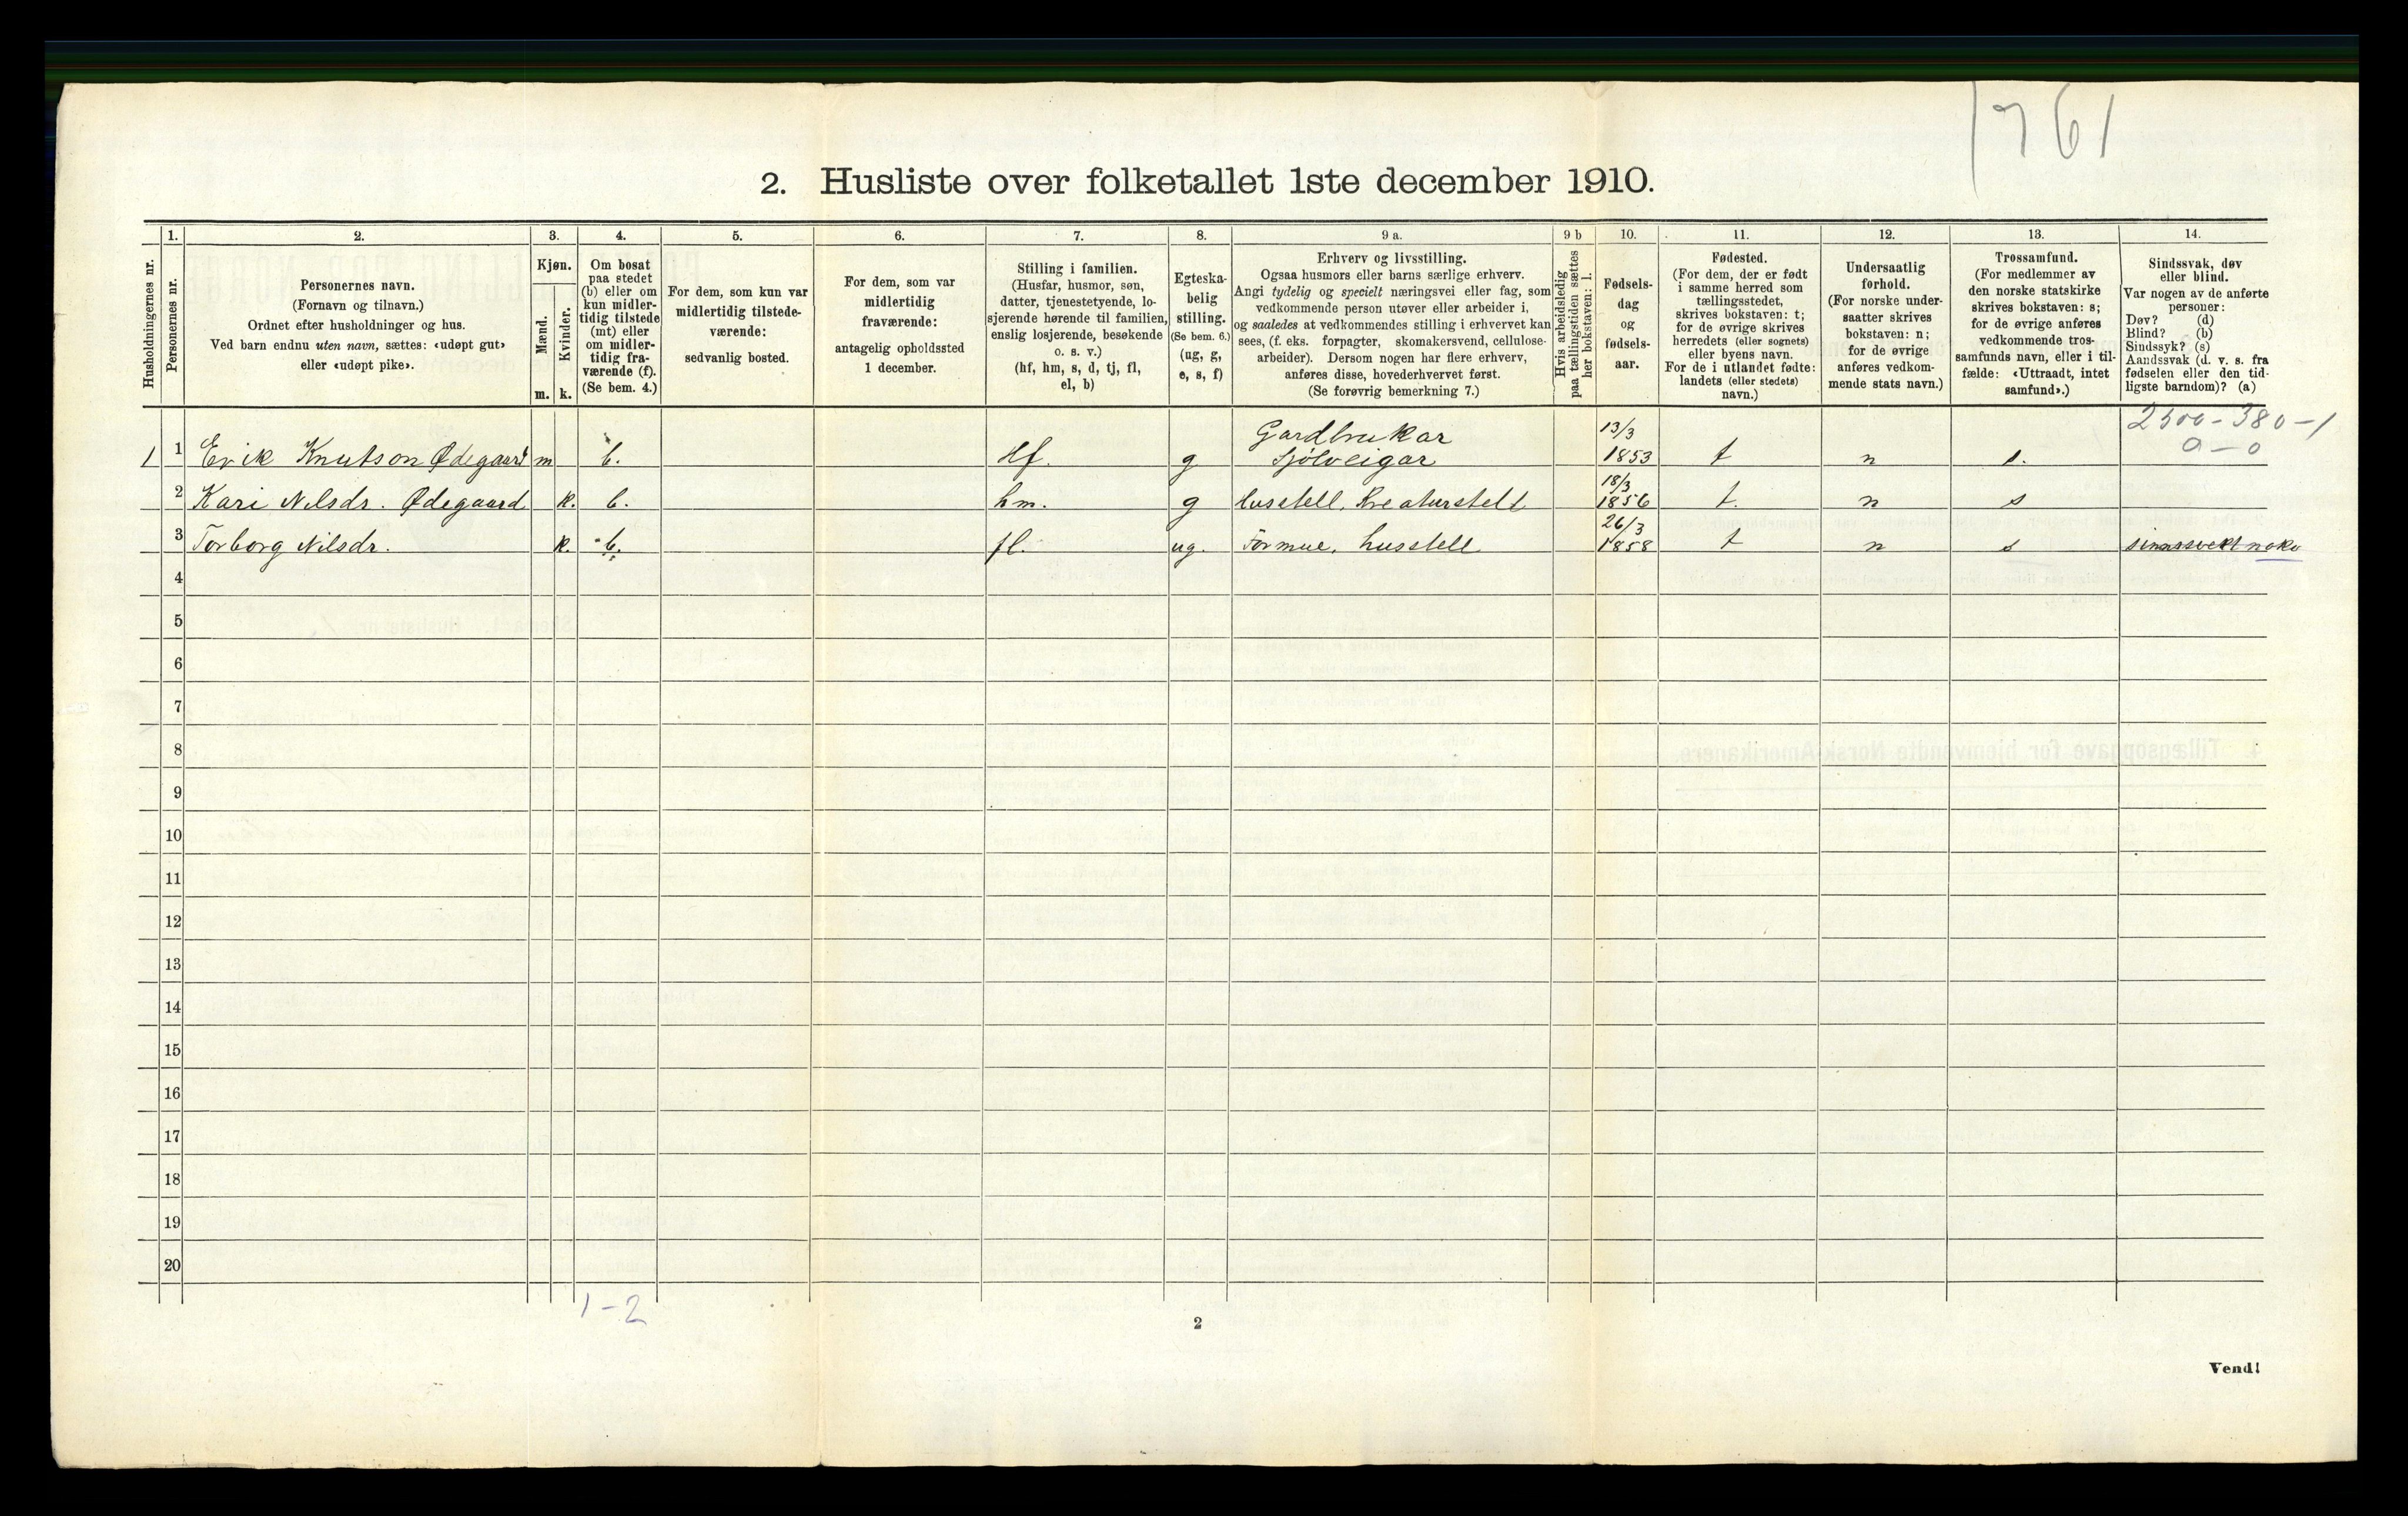 1761
2. Husliste over folketallet 1ste december 1910.
1. 2. 3. 4. 5. 6. 7. 8. 9 a. 9 b 10. 11. 12. 13. 14.
Husholdningernes nr.
Personernes nr.
Personernes navn.
(Fornavn og tilnavn.)
Ordnet efter husholdninger og hus.
Ved barn endnu uten navn, sættes: «udøpt gut»
eller «udøpt pike».
Kjøn.
Mænd.
Kvinder.
m. k.
Om bosat
paa stedet
(b) eller om
kun midler-
tidig tilstede
(mt) eller
om midler-
tidig fra-
værende (f).
(Se bem. 4.)
For dem, som kun var
midlertidig tilstede-
værende:
sedvanlig bosted.
For dem, som var
midlertidig
fraværende:
antagelig opholdssted
1 december.
Stilling i familien.
(Husfar, husmor, søn,
datter, tjenestetyende, lo-
sjerende hørende til familien,
enslig losjerende, besøkende
o. s. v.)
(hf, hm, s, d, tj, fl,
el, b)
Egteska-
belig
stilling.
(Se bem. 6.)
(ug, g,
e, s, f)
Erhverv og livsstilling.
Ogsaa husmors eller barns særlige erhverv.
Angi tydelig og specielt næringsvei eller fag, som
vedkommende person utøver eller arbeider i,
og saaledes at vedkommendes stilling i erhvervet kan
sees, (f. eks. forpagter, skomakersvend, cellulose-
arbeider). Dersom nogen har flere erhverv,
anføres disse, hovederhvervet først.
(Se forøvrig bemerkning 7.)
Hvis arbeidsledig
paa tællingstiden sættes
her bokstaven: l.
Fødsels-
dag
og
fødsels-
aar.
Fødested.
(For dem, der er født
i samme herred som
tællingsstedet,
skrives bokstaven: t;
for de øvrige skrives
herredets (eller sognets)
eller byens navn.
For de i utlandet fødte:
landets (eller stedets)
navn.)
Undersaatlig
forhold.
(For norske under-
saatter skrives
bokstaven: n;
for de øvrige
anføres vedkom-
mende stats navn.)
Trossamfund.
(For medlemmer av
den norske statskirke
skrives bokstaven: s;
for de øvrige anføres
vedkommende tros-
samfunds navn, eller i til-
fælde: «Uttraadt, intet
samfund».)
Sindssvak, døv
eller blind.
Var nogen av de anførte
personer:
Døv? (d)
Blind? (b)
Sindssyk? (s)
Aandssvak (d. v. s. fra
fødselen eller den tid-
ligste barndom)? (a)
2500-380-1
0-0
Gardbrukar 13/3
1 1 Erik Knutson Ødegaard m b. Hf. g Sjølveigar 1853 t n s.
18/3
2 Kari Nilsdr. Ødegaard k. b. hm. g Husstell, Kreaturstell 1856 t. n s
26/3
3 Torborg Nilsdr. k. b. fl. ug. Formue, husstell 1858 t n s sinnssvekt noko
4
5
6
7
8
9
10
11
12
13
14
15
16
17
18
19
20
1-2
2
Vend!